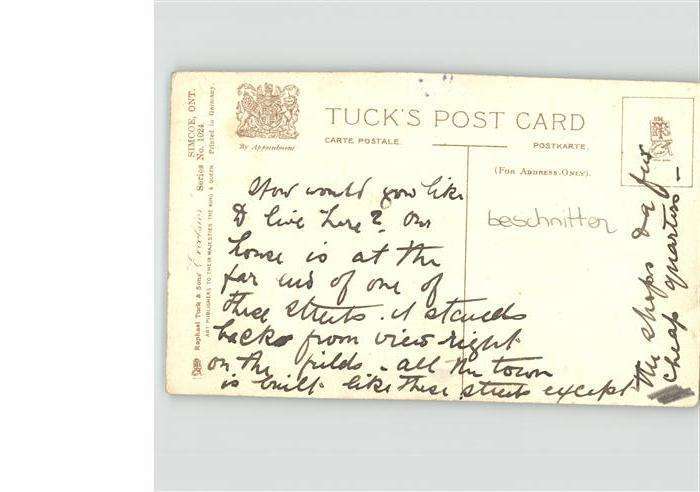 TUCK'S POST CARD
CARTE POSTALE.
POSTKARTE.
(FOR ADDRESS ONLY).
By Appointment
SIMCOE, ONT.
Series No. 1024
Printed in Germany.
Raphael Tuck & Sons'
ART PUBLISHERS TO THEIR MAJESTIES THE KING & QUEEN
beschnitten
How would you like
to live here? Our
house is at the
far end of one of
these streets. it stands
back from view right
on the fields - all the town
is built like these streets except
the shops & a few
cheap quarters -